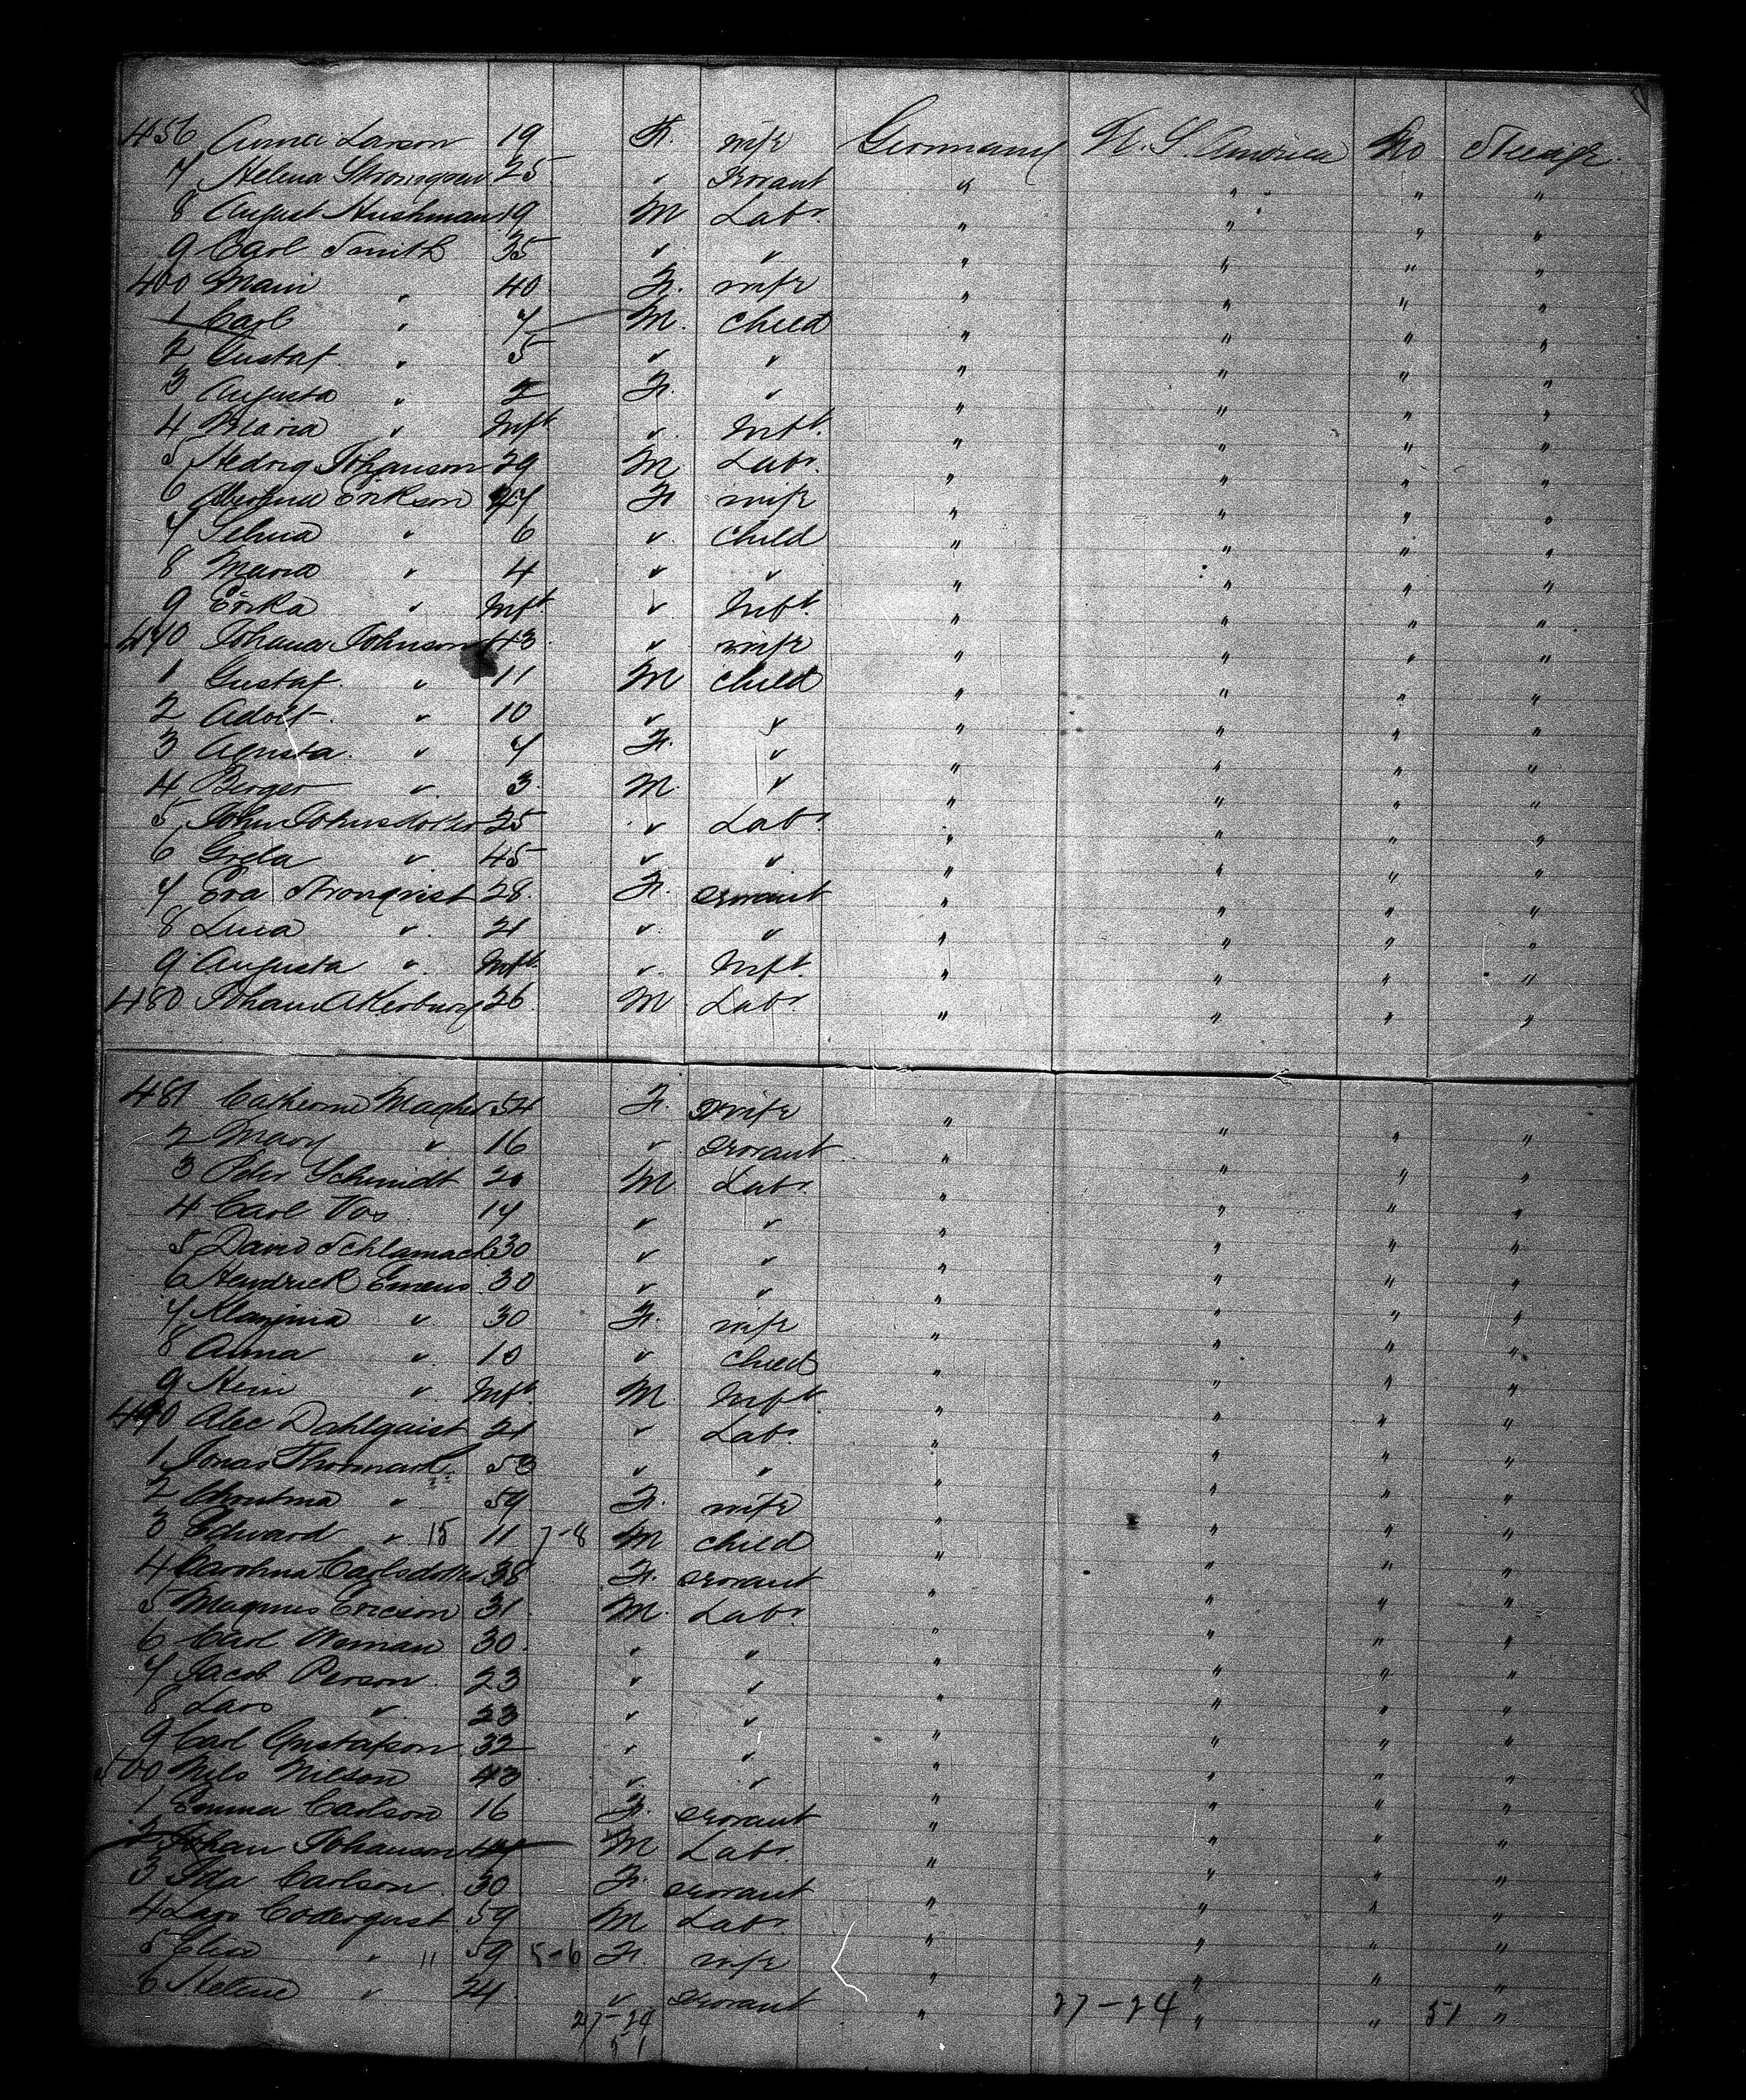 456 Anna Larson 19 F. wife Germany U. S. America No Steerage
7 Helena Stromgren 25 " Servant " " " "
8 August Hushman 19 M Labr. " " " "
9 Carl Smith 35 " " " " " "
460 Mari " 40 F. wife " " " "
1 Carl " 7 M. Child " " " "
2 Gustaf " 5 " " " " " "
3 Augusta " 2 F. " " " " "
4 Maria " Inft " Inft. " " " "
5 Hedvig Johanson 29 M Labr. " " " "
6 Erikson F. wife " " " "
7 Selma " 6 " Child " " " "
8 Maria " 4 " " " " " "
9 Erika " Inft " Inft. " " " "
470 Johanna Johnson 43 " wife " " " "
1 Gustaf " 11 M Child " " " "
2 Adolf " 10 " " " " " "
3 Agusta " 7 F. " " " " "
4 Berger " 3 M " " " " "
5 John Johnsdotter 25 " Labr. " " " "
6 Greta " 45 " " " " " "
7 Eva Stronqvist 28 F. Servant " " " "
8 Lina " 21 " " " " " "
9 Augusta " Inft. " Inft. " " " "
480 Johan Akerburg 26 M Labr " " " "
481 Catherine Magher 54 F. wife " " " "
2 Mary " 16 " Servant " " " "
3 Peter Schmidt 20 M Labr. " " " "
4 Carl Vos 17 " " " " " "
5 David Schlamach 30 " " " " " "
6 Hendrick Emens 30 " " " " " "
7 " 30 F. wife " " " "
8 Anna " 10 " Child " " " "
9 Hein " Inft. M. Inft. " " " "
490 Alec Dahlquist 21 " Labr. " " " "
1 Jonas Thormark 53 " " " " " "
2 Christina " 59 F. wife " " " "
3 Edward " 15 11 7-8 M Child " " " "
4 Carolina Carlsdotter 38 F. Servant " " " "
5 Magnus Ericson 31 M. Labr " " " "
6 Carl Weman 30 " " " " " "
7 Jacob Person 23 " " " " " "
8 Lars " 23 " " " " " "
9 Carl Gustafson 32 " " " " " "
500 Nils Nilson 43 " " " " " "
1 Emma Carlson 16 F. Servant " " " "
2 Johan Johanson M Labr. " " " "
3 Ida Carlson 30 F. Servant " " " "
4 Lars Coderquist 59 M Labr. " " " "
5 Elisa " 11 59 5-6 F. wife " " " "
6 Helene " 24 " Servant " 27-24 " " 51 "
27-24
51